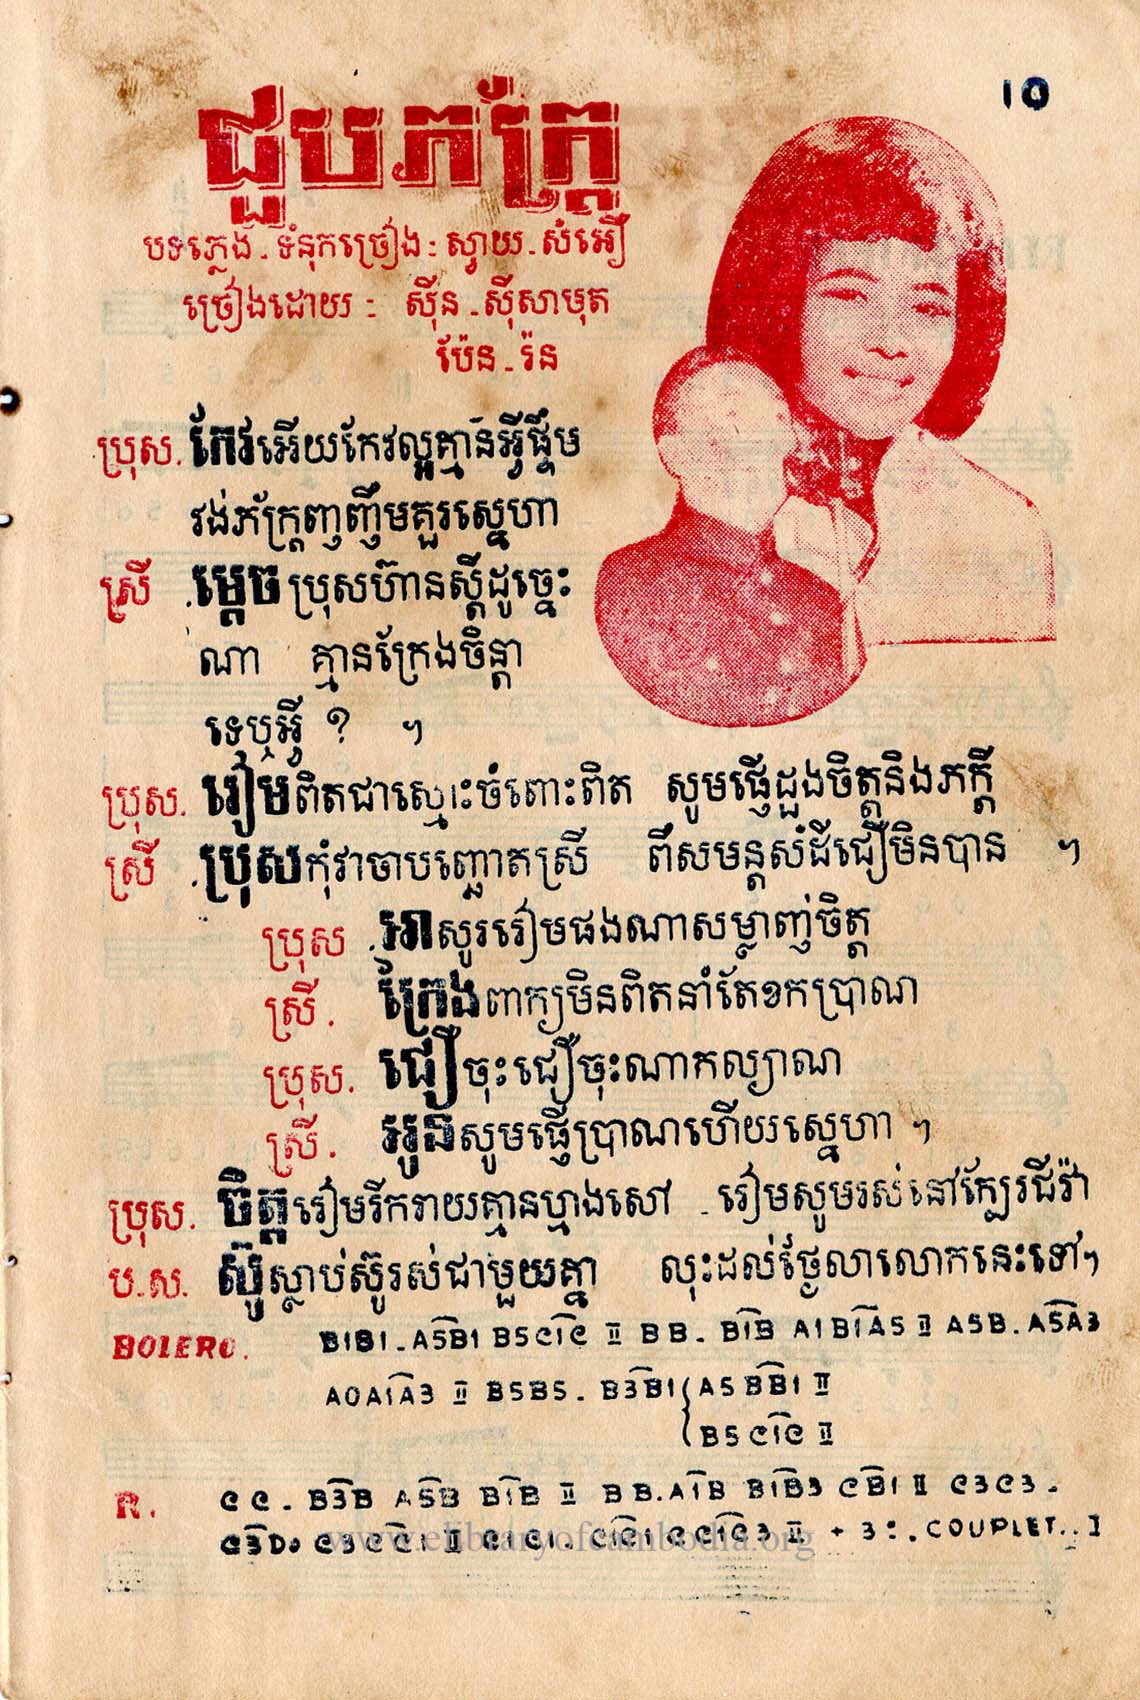 ១០
ជួបភក្ត្រែ
បទភ្លេង - ទំនុកច្រៀង : ស្វាយ - សំអឿ
ច្រៀងដោយ : ស៊ីន - ស៊ីសាមុត
ប៉ែន - រ៉ន
ប្រុស. កែវអើយកែវល្អគ្មានអ្វីផ្ទឹម
វង់ភ័ក្ត្រញញឹមគួរស្នេហា
ស្រី . ម្ដេចប្រុសហ៊ានស្ដីដូច្នេះ
ណា គ្មានក្រែងចិន្ដា
ទេឬអ្វី ? ។
ប្រុស. រៀមពិតជាស្មោះចំពោះពិត សូមផ្ញើដួងចិត្តនិងភក្ដី
ស្រី . ប្រុសកុំវាចាបញ្ឆោតស្រី ពីសមន្តសំដីជឿមិនបាន ។
ប្រុស . អាសូររៀមផងណាសម្លាញ់ចិត្ត
ស្រី . ក្រែងពាក្យមិនពិតនាំតែខកប្រាណ
ប្រុស. ជឿចុះជឿចុះណាកល្យាណ
ស្រី . អូនសូមផ្ញើប្រាណហើយស្នេហា ។
ប្រុស. ចិត្តរៀមរីករាយគ្មានហ្មងសៅ - រៀមសូមរស់នៅក្បែរជីវ៉ា
ប.ស. ស៊ូស្លាប់ស៊ូរស់ជាមួយគ្នា លុះដល់ថ្ងៃលាលោកនេះទៅ។
BOLERO. B1B1.A5B1 B5C1C II B B. B1B A1B1A5 II A5B.A5A3
A0A1A3 II B5B5. B3B1 A5BB1 II
B5C1C II
R. C C . B3B A5B B1B II B B.A1B B1B3 CB1 II C3C3.
C3D0 C3CC1 II C1C1. C1C1 CC1C3 II + 3 : . COUPLET..I
www.elibraryofcambodia.org